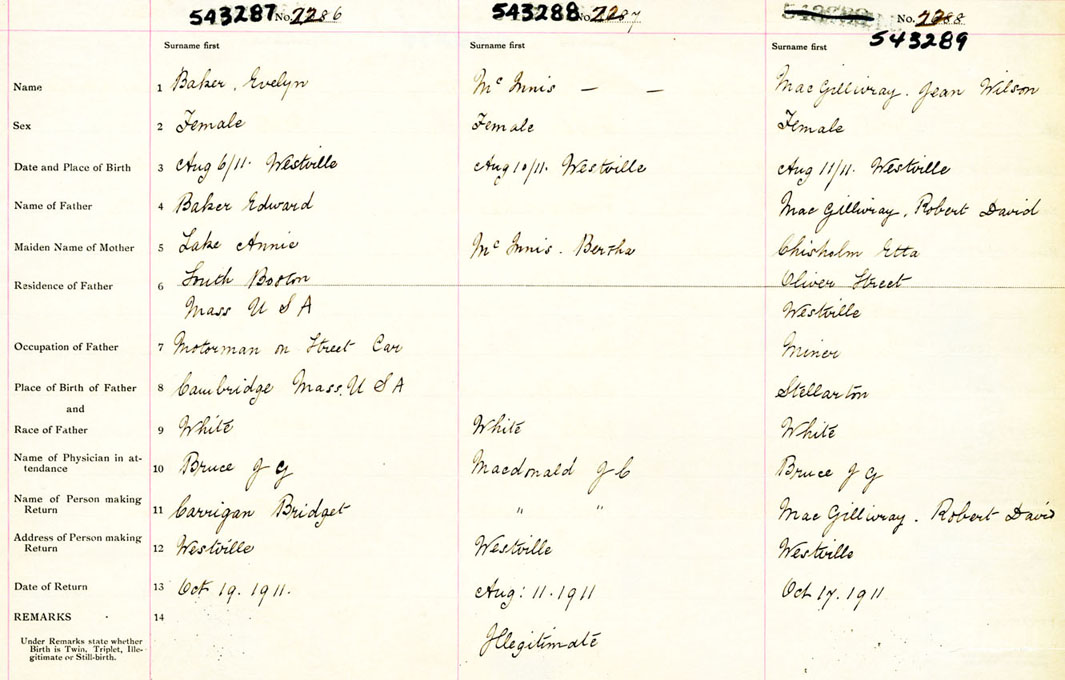 543287 No. 2286 543288 No. 2287 No. 2288
543289
Surname first Surname first Surname first
Name 1 Baker, Evelyn McInnis — — MacGillivray. Jean Wilson
Sex 2 Female Female Female
Date and Place of Birth 3 Aug 6/11. Westville Aug 10/11. Westville Aug 11/11. Westville
Name of Father 4 Baker Edward MacGillivray, Robert David
Maiden Name of Mother 5 Lake Annie McInnis. Bertha Chisholm Etta
Residence of Father 6 South Boston Oliver Street
Mass U S A Westville
Occupation of Father 7 Motorman on Street Car Miner
Place of Birth of Father 8 Cambridge Mass. U S A Stellarton
and
Race of Father 9 White White White
Name of Physician in at-
tendance 10 Bruce J G Macdonald J C Bruce J G
Name of Person making
Return 11 Carrigan Bridget " " MacGillivray. Robert David
Address of Person making
Return 12 Westville Westville Westville
Date of Return 13 Oct 19. 1911. Aug: 11. 1911 Oct 17. 1911
REMARKS 14
Under Remarks state whether
Birth is Twin, Triplet, Ille-
gitimate or Still-birth.
Illegitimate